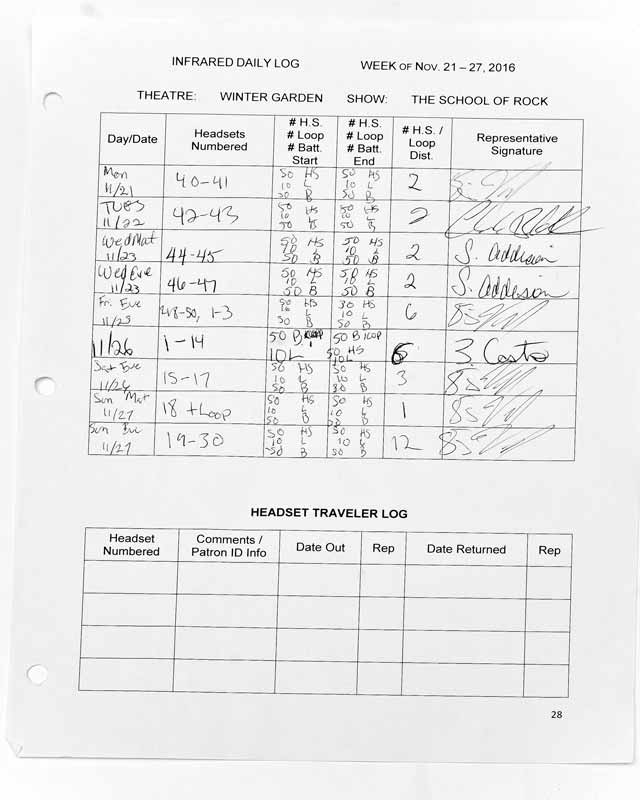 INFRARED DAILY LOG WEEK OF NOV. 21 – 27, 2016
THEATRE: WINTER GARDEN SHOW: THE SCHOOL OF ROCK
Day/Date Headsets Numbered # H.S. # Loop # Batt. Start # H.S. # Loop # Batt. End # H.S. / Loop Dist. Representative Signature
Mon 11/21 40-41 50 HS 10 L 50 B 50 HS 10 L 50 B 2
TUES 11/22 42-43 50 HS 10 L 50 B 50 HS 10 L 50 B 2
Wed Mat 11/23 44-45 50 HS 10 L 50 B 50 HS 10 L 50 B 2 S. Addison
Wed Eve 11/23 46-47 50 HS 10 L 50 B 50 HS 10 L 50 B 2 S. Addison
Fri Eve 11/25 48-50, 1-3 50 HS 10 L 50 B HS 10 L 50 B 6
11/26 1-14 50 B 10L 50 B 50 HS Z. Casto
Sat Eve 11/26 15-17 50 HS 10 L 50 B 50 HS 10 L B 3
Sun Mat 11/27 18 + Loop 50 HS 10 L 50 B 50 HS 10 L 50 B 1
Sun Eve 11/27 19-30 50 HS 10 L 50 B 50 HS 10 L 50 B 12
HEADSET TRAVELER LOG
Headset Numbered Comments / Patron ID Info Date Out Rep Date Returned Rep
28